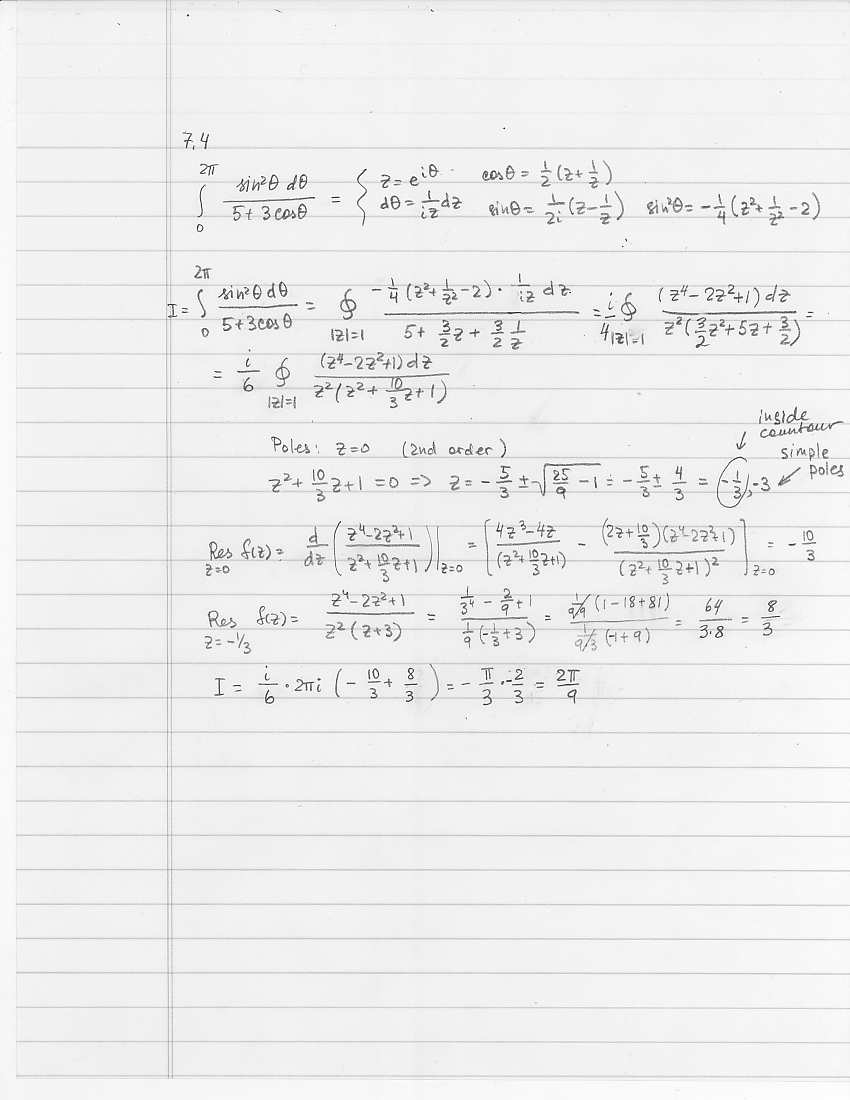 7.4
∫₀^{2π} sin²θ dθ / (5+3cosθ) = { z = e^{iθ}   cosθ = 1/2 (z + 1/z)
dθ = 1/(iz) dz   sinθ = 1/(2i) (z − 1/z)   sin²θ = −1/4 (z² + 1/z² − 2)
I = ∫₀^{2π} sin²θ dθ / (5+3cosθ) = ∮_{|z|=1} −1/4 (z² + 1/z² − 2) · 1/(iz) dz / (5 + 3/2 z + 3/2 1/z) = i/4 ∮_{|z|=1} (z⁴ − 2z² + 1) dz / (z² (3/2 z² + 5z + 3/2)) =
= i/6 ∮_{|z|=1} (z⁴ − 2z² + 1) dz / (z² (z² + 10/3 z + 1))
inside
countour
Poles: z=0 (2nd order)
simple
poles
z² + 10/3 z + 1 = 0 => z = −5/3 ± √(25/9 − 1) = −5/3 ± 4/3 = −1/3, −3
Res_{z=0} f(z) = d/dz ((z⁴ − 2z² + 1) / (z² + 10/3 z + 1))|_{z=0} = [(4z³ − 4z) / (z² + 10/3 z + 1) − (2z + 10/3)(z⁴ − 2z² + 1) / (z² + 10/3 z + 1)²]_{z=0} = −10/3
Res_{z=−1/3} f(z) = (z⁴ − 2z² + 1) / (z² (z+3)) = (1/3⁴ − 2/9 + 1) / (1/9 (−1/3 + 3)) = 1/9/9 (1 − 18 + 81) / 1/9/3 (−1 + 9) = 64/(3·8) = 8/3
I = i/6 · 2πi (−10/3 + 8/3) = −π/3 · −2/3 = 2π/9